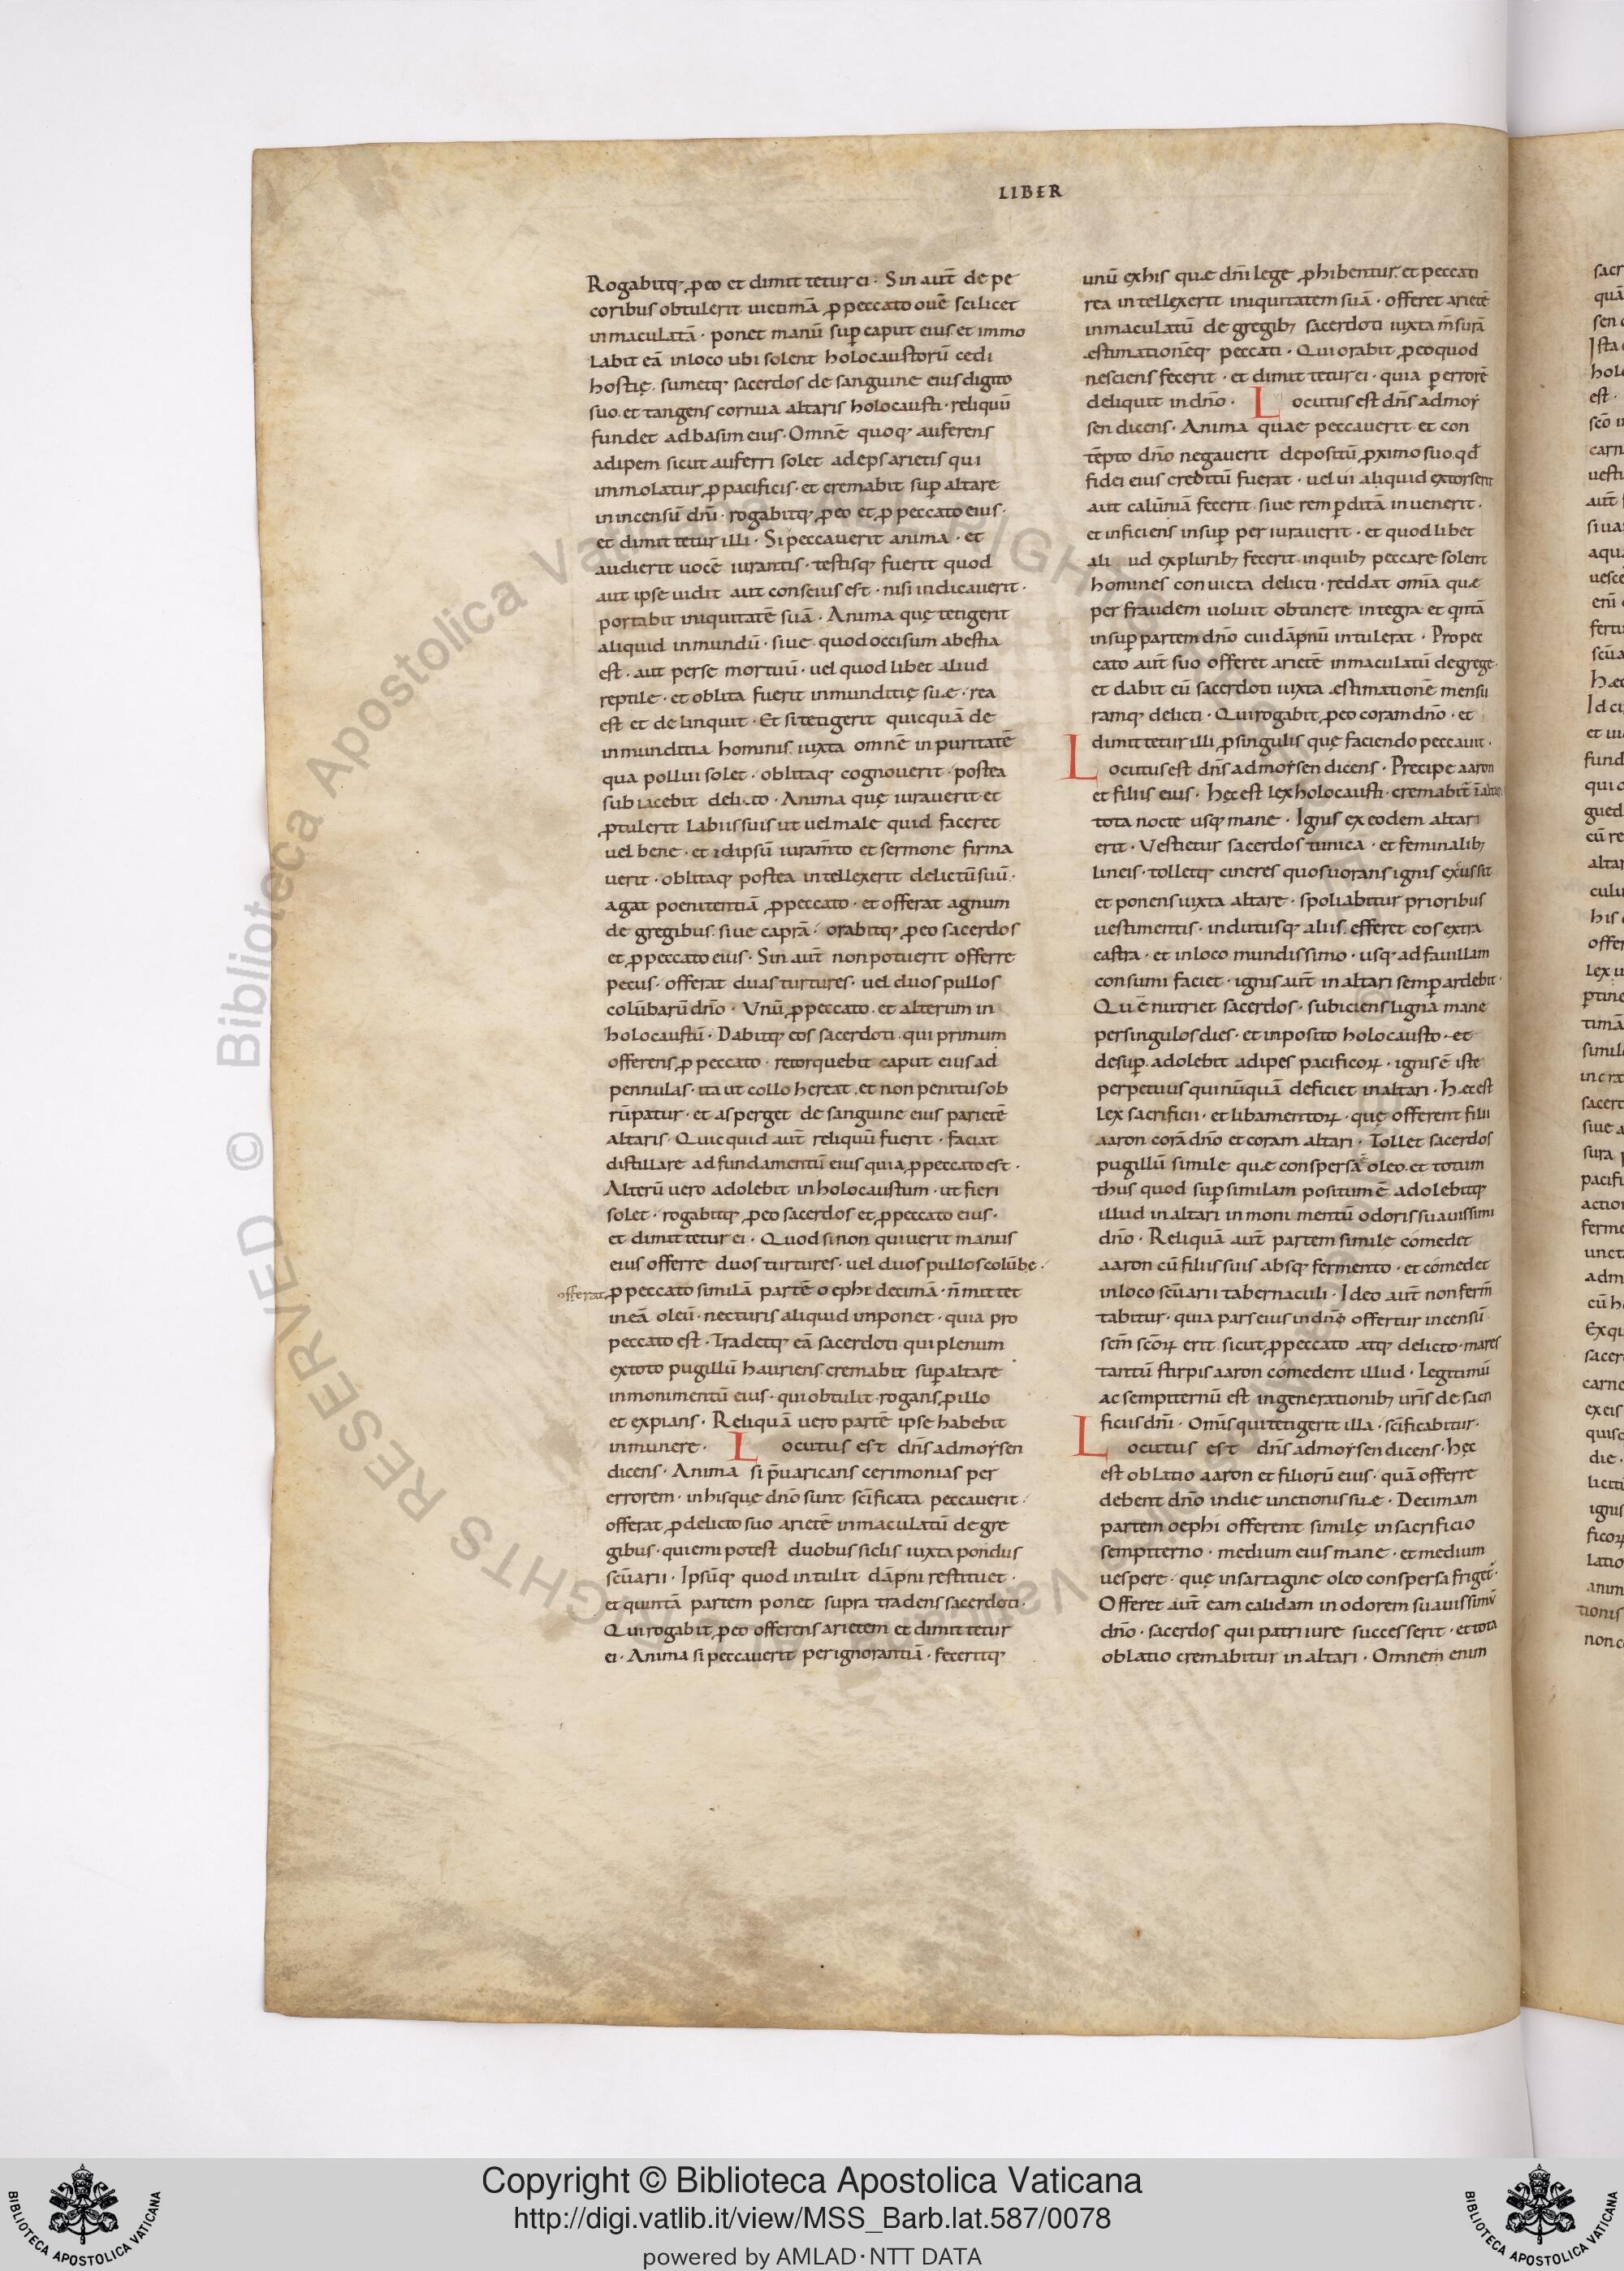 LIBER
Rogabitq; ꝓ eo et dimittetur ei · Sin aut̄ de pe
coribus obtulerit uictimā ꝓ peccato ouē scilicet
inmaculatā · ponet manū sup̄ caput eius et immo
labit eā inloco ubi solent holocaustorū cedi
hostię · sumetq; sacerdos de sanguine eius digito
suo · et tangens cornua altaris holocausti · reliquū
fundet ad basim eius · Omnē quoq; auferens
adipem sicut auferri solet adeps arietis qui
immolatur ꝓ pacificis · et cremabit sup̄ altare
in incensū dn̄i · rogabitq; ꝓ eo et ꝓ peccato eius ·
et dimittetur illi · Si peccauerit anima · et
audierit uocē iurantis · testisq; fuerit quod
aut ipse uidit aut conscius est · nisi indicauerit ·
portabit iniquitatē suā · Anima quę tetigerit
aliquid inmundū · siue quod occisum abestia
est · aut perse mortuū · uel quodlibet aliud
reptile · et oblita fuerit inmunditię suæ · rea
est et delinquit · Et si tetigerit quicquā de
inmunditia hominis iuxta omnē inpuritatē
qua pollui solet · oblitaq; cognouerit · postea
subiacebit delicto · Anima quę iurauerit · et
ꝓtulerit labiis suis ut uel male quid faceret
uel bene · et idipsū iuram̄to et sermone firma
uerit · oblitaq; postea intellexerit delictū suū ·
agat poenitentiā ꝓ peccato · et offerat agnum
de gregibus siue caprā · orabitq; ꝓ eo sacerdos
et ꝓ peccato eius · Sin aut̄ non potuerit offerre
pecus · offerat duas turtures · uel duos pullos
colūbarū dn̄o · Vnū ꝓ peccato · et alterum in
holocaustū · Dabitq; eos sacerdoti · qui primum
offerens ꝓ peccato · retorquebit caput eius ad
pennulas · ita ut collo hereat · et non penitus ob
rūpatur · et asperget de sanguine eius parietē
altaris · Quicquid aut̄ reliquū fuerit · faciat
distillare ad fundamentū eius quia ꝓ peccato est ·
Alterū uero adolebit in holocaustum · ut fieri
solet · rogabitq; ꝓ eo sacerdos et ꝓ peccato eius ·
et dimittetur ei · Quod si non quiuerit manus
eius offerre duos turtures · uel duos pullos colūbe ·
offerat ꝓ peccato similā partē oephi decimā · n̄ mittet
in eā oleū · nec turis aliquid imponet · quia pro
peccato est · Tradetq; eā sacerdoti qui plenum
ex toto pugillū hauriens cremabit sup̄ altare
inmonimentū eius · qui obtulit · rogans ꝓ illo
et expians · Reliquā uero partē ipse habebit
inmunere · Locutus est dn̄s ad moẏsen
dicens · Anima si p̄uaricans cerimonias per
errorem · inhis quę dn̄o sunt sc̄ificata peccauerit ·
offerat ꝓ delicto suo arietē inmaculatū de gre
gibus · qui emi potest duobus siclis iuxta pondus
sc̄uarii · Ipsūq; quod intulit dāpni restituet ·
et quintā partem ponet supra tradens sacerdoti ·
Qui rogabit ꝓ eo offerens arietem et dimittetur
ei · Anima si peccauerit per ignorantiā · feceritq;
unū ex his quæ dn̄i lege ꝓhibentur · et peccati
rea intellexerit iniquitatem suā · offeret arietē
inmaculatū de gregib; sacerdoti iuxta m̄surā
æstimationēq; peccati · Qui orabit ꝓ eo quod
nesciens fecerit · et dimittetur ei · quia p̱ errorē
deliquit in dn̄o · Locutus est dn̄s ad moẏ
sen dicens · Anima quae peccauerit · et con
tēpto dn̄o negauerit depositū ꝓximo suo qđ
fidei eius creditū fuerat · uel ui aliquid extorserit
aut calūniā fecerit siue rem p̱ditā inuenerit ·
et inficiens insup̄ per iurauerit · et quodlibet
ali ud ex plurib; fecerit inquib; peccare solent
homines conuicta delicti · reddat omīa quæ
per fraudem uoluit obtinere integra et qͥntā
insup̄ partem dn̄o cui dāpnū intulerat · Pro pec
cato aut̄ suo offeret arietē inmaculatū de grege ·
et dabit eū sacerdoti iuxta æstimationē mensu
ramq; delicti · Qui rogabit ꝓ eo coram dn̄o · et
dimittetur illi ꝓ singulis quę faciendo peccauit ·
Locutus est dn̄s ad moẏsen dicens · Precipe aaron
et filiis eius · hęc est lex holocausti · cremabit̄ ī altari
tota nocte usq; mane · Ignis ex eodem altari
erit · Vestietur sacerdos tunica · et feminalib;
lineis · tolletq; cineres quos uorans ignis exussit
et ponens iuxta altare · spoliabitur prioribus
uestimentis · indutusq; aliis efferet eos extra
castra · et inloco mundissimo · usq; ad fauillam
consumi faciet · ignis aut̄ in altari semp̄ ardebit ·
Quē nutriet sacerdos · subiciens ligna mane
per singulos dies · et inposito holocausto · et
desup̄ adolebit adipes pacificoꝝ · ignis ē iste
perpetuus qui nūquā deficiet in altari · Hæc est
lex sacrificii · et libamentoꝝ · quę offerent filii
aaron corā dn̄o et coram altari · Tollet sacerdos
pugillū simile quæ conspersa ē oleo · et totum
thus quod sup̄ similam positum ē adolebitq;
illud in altari in monimentū odoris suauissimi
dn̄o · Reliquā aut̄ partem similę cómedet
aaron cū filiis suis absq; fermento · et cómedet
inloco sc̄uarii tabernaculi · Ideo aut̄ non ferm̄
tabitur · quia pars eius in dn̄o offertur incensū
scm̄ scōꝝ erit sicut ꝓ peccato atq; delicto · mares
tantū stirpis aaron cómedent illud · Legitimū
ac sempiternū est in generationib; ur̄is de sacri
ficiis dn̄i · Omīs qui tetigerit illa · sc̄ificabitur ·
Locutus est dn̄s ad moẏsen dicens · hęc
est oblatio aaron et filiorū eius · quā offerre
debent dn̄o in die unctionis suæ · Decimam
partem oephi offerent similę in sacrificio
sempiterno · medium eius mane · et medium
uespere · quę insartagine oleo conspersa friget̄
Offeret aut̄ eam calidam in odorem suauissimū
dn̄o · sacerdos qui patri iure successerit · et tota
oblatio cremabitur in altari · Omnem enim
Copyright © Biblioteca Apostolica Vaticana
http://digi.vatlib.it/view/MSS_Barb.lat.587/0078
powered by AMLAD·NTT DATA